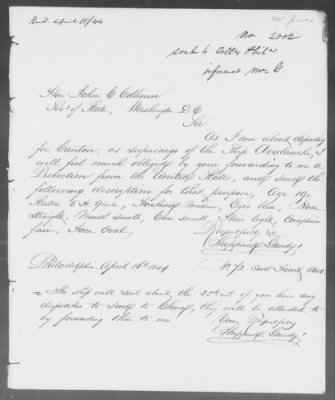 Recd. April 18/44
No 2002
sent to Collr Phila
informed Mr. G
Hon John C Calhoun
Secy of State, Washington D. C.
Sir
As I am about departing
for Canton, as supercargo of the Ship Avalanche, I
will feel much obliged by your forwarding to me a
Protection from the United States, and send the
following description for that purpose. Age 19,
Stature 5 ft. Forehead medium, Eyes blue, Nose
straight, Mouth small, Chin small, Hair light, Complexion
fair, Face Oval.
Respectfully &c
Sheppard Gandy
Philadelphia April 16th 1844
No 72 South Front Street
The ship will sail about the 25th inst if you have any
dispatches to send to China, they will be attended to
by forwarding them to me.
Very Respectfully
Sheppard Gandy